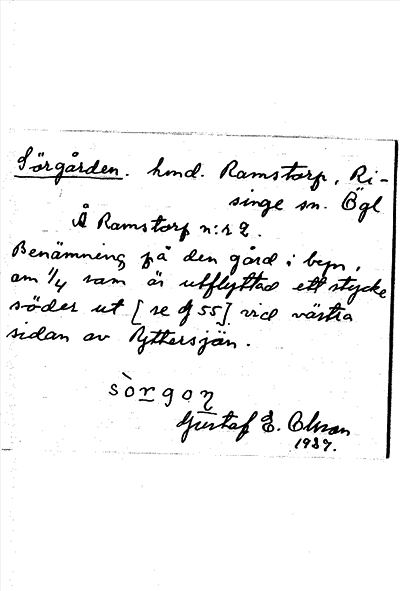 Sörgården. hmd. Ramstorp, Ri-
singe sn. Ögl
Å Ramstorp n:r 2.
Benämning på den gård i byn,
om 1/4 som är utflyttad ett stycke
söder ut [se 55] vid västra
sidan av Yttersjön.
sòrgoŋ
Gustaf E. Olsson
1937.